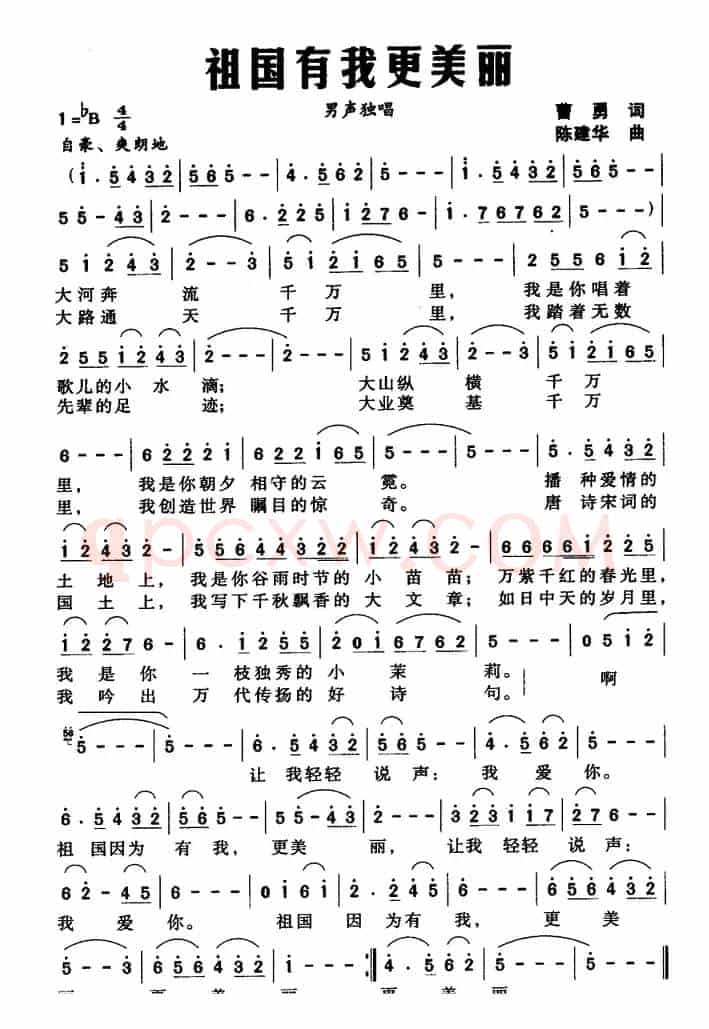 祖国有我更美丽
1=♭B 4/4
男声独唱
曹 勇 词
陈建华 曲
自豪、爽朗地
(i. 5 4 3 2 | 5 6 5 - - | 4. 5 6 2 | 5 - - - | i. 5 4 3 2 | 5 6 5 - - |
5 5 - 4 3 | 2 - - - | 6. 2 2 5 | i 2 7 6 - | i. 7 6 7 6 2 | 5 - - - )|
5 i 2 4 3 | 2 - - - | 5 i 2 i 6 5 | 5 - - - | 2 5 5 6 i 2 |
大河奔 流 千 万 里, 我是你唱着
大路通 天 千 万 里, 我踏着无数
2 5 5 i 2 4 3 | 2 - - - | 2 - - - | 5 i 2 4 3 | 2 - - - | 5 i 2 i 6 5 |
歌儿的小 水 滴; 大山纵 横 千 万
先辈的足 迹; 大业奠 基 千 万
6 - - - | 6 2 2 2 i | 6 2 2 2 i 6 5 | 5 - - - | 5 - - - | 5. 5 4 3 2 |
里, 我是你朝夕 相守的云 霓。 播 种爱情的
里, 我创造世界 瞩目的惊 奇。 唐 诗宋词的
qpcxw.COM
i 2 4 3 2 - | 5 5 6 4 4 3 2 2 | 5. 2 4 3 2 - | 6 6 6 6 6 i 2 2 5 |
土 地 上, 我是你谷雨时节的 小 苗 苗; 万紫千红的春光里,
国 土 上, 我写下千秋飘香的 大 文 章; 如日中天的岁月里,
i 2 2 7 6 - | 6. i 2 5 5 | 2 0 i 6 7 6 2 | 5 - - - | 0 0 5 i 2 |
我 是 你 一 枝独秀的 小 茉 莉。 啊
我 吟 出 万 代传扬的 好 诗 句。
5 - - - | 5 - - - | 6. 5 4 3 2 | 5 6 5 - - | 4. 5 6 2 | 5 - - - |
让 我轻轻 说 声: 我 爱 你。
6. 5 4 3 2 | 5 6 5 - - | 5 5 - 4 3 | 2 - - - | 3 2 3 i 7 | 6 i 7 6 - |
祖 国因为 有 我, 更美 丽, 让我 轻轻 说 声:
6 2 - 4 5 | 6 - - - | 0 i 6 i | 2. 3 4 5 | 6 - - - | 6 5 6 4 3 2 |
我 爱 你。 祖国 因 为有 我, 更 美
5 - - 3 | 6 5 6 4 3 2 | i - - - :‖ 4. 5 6 2 | 5 - - - | 5 - - - ‖
丽 更 美 丽 更 美 丽